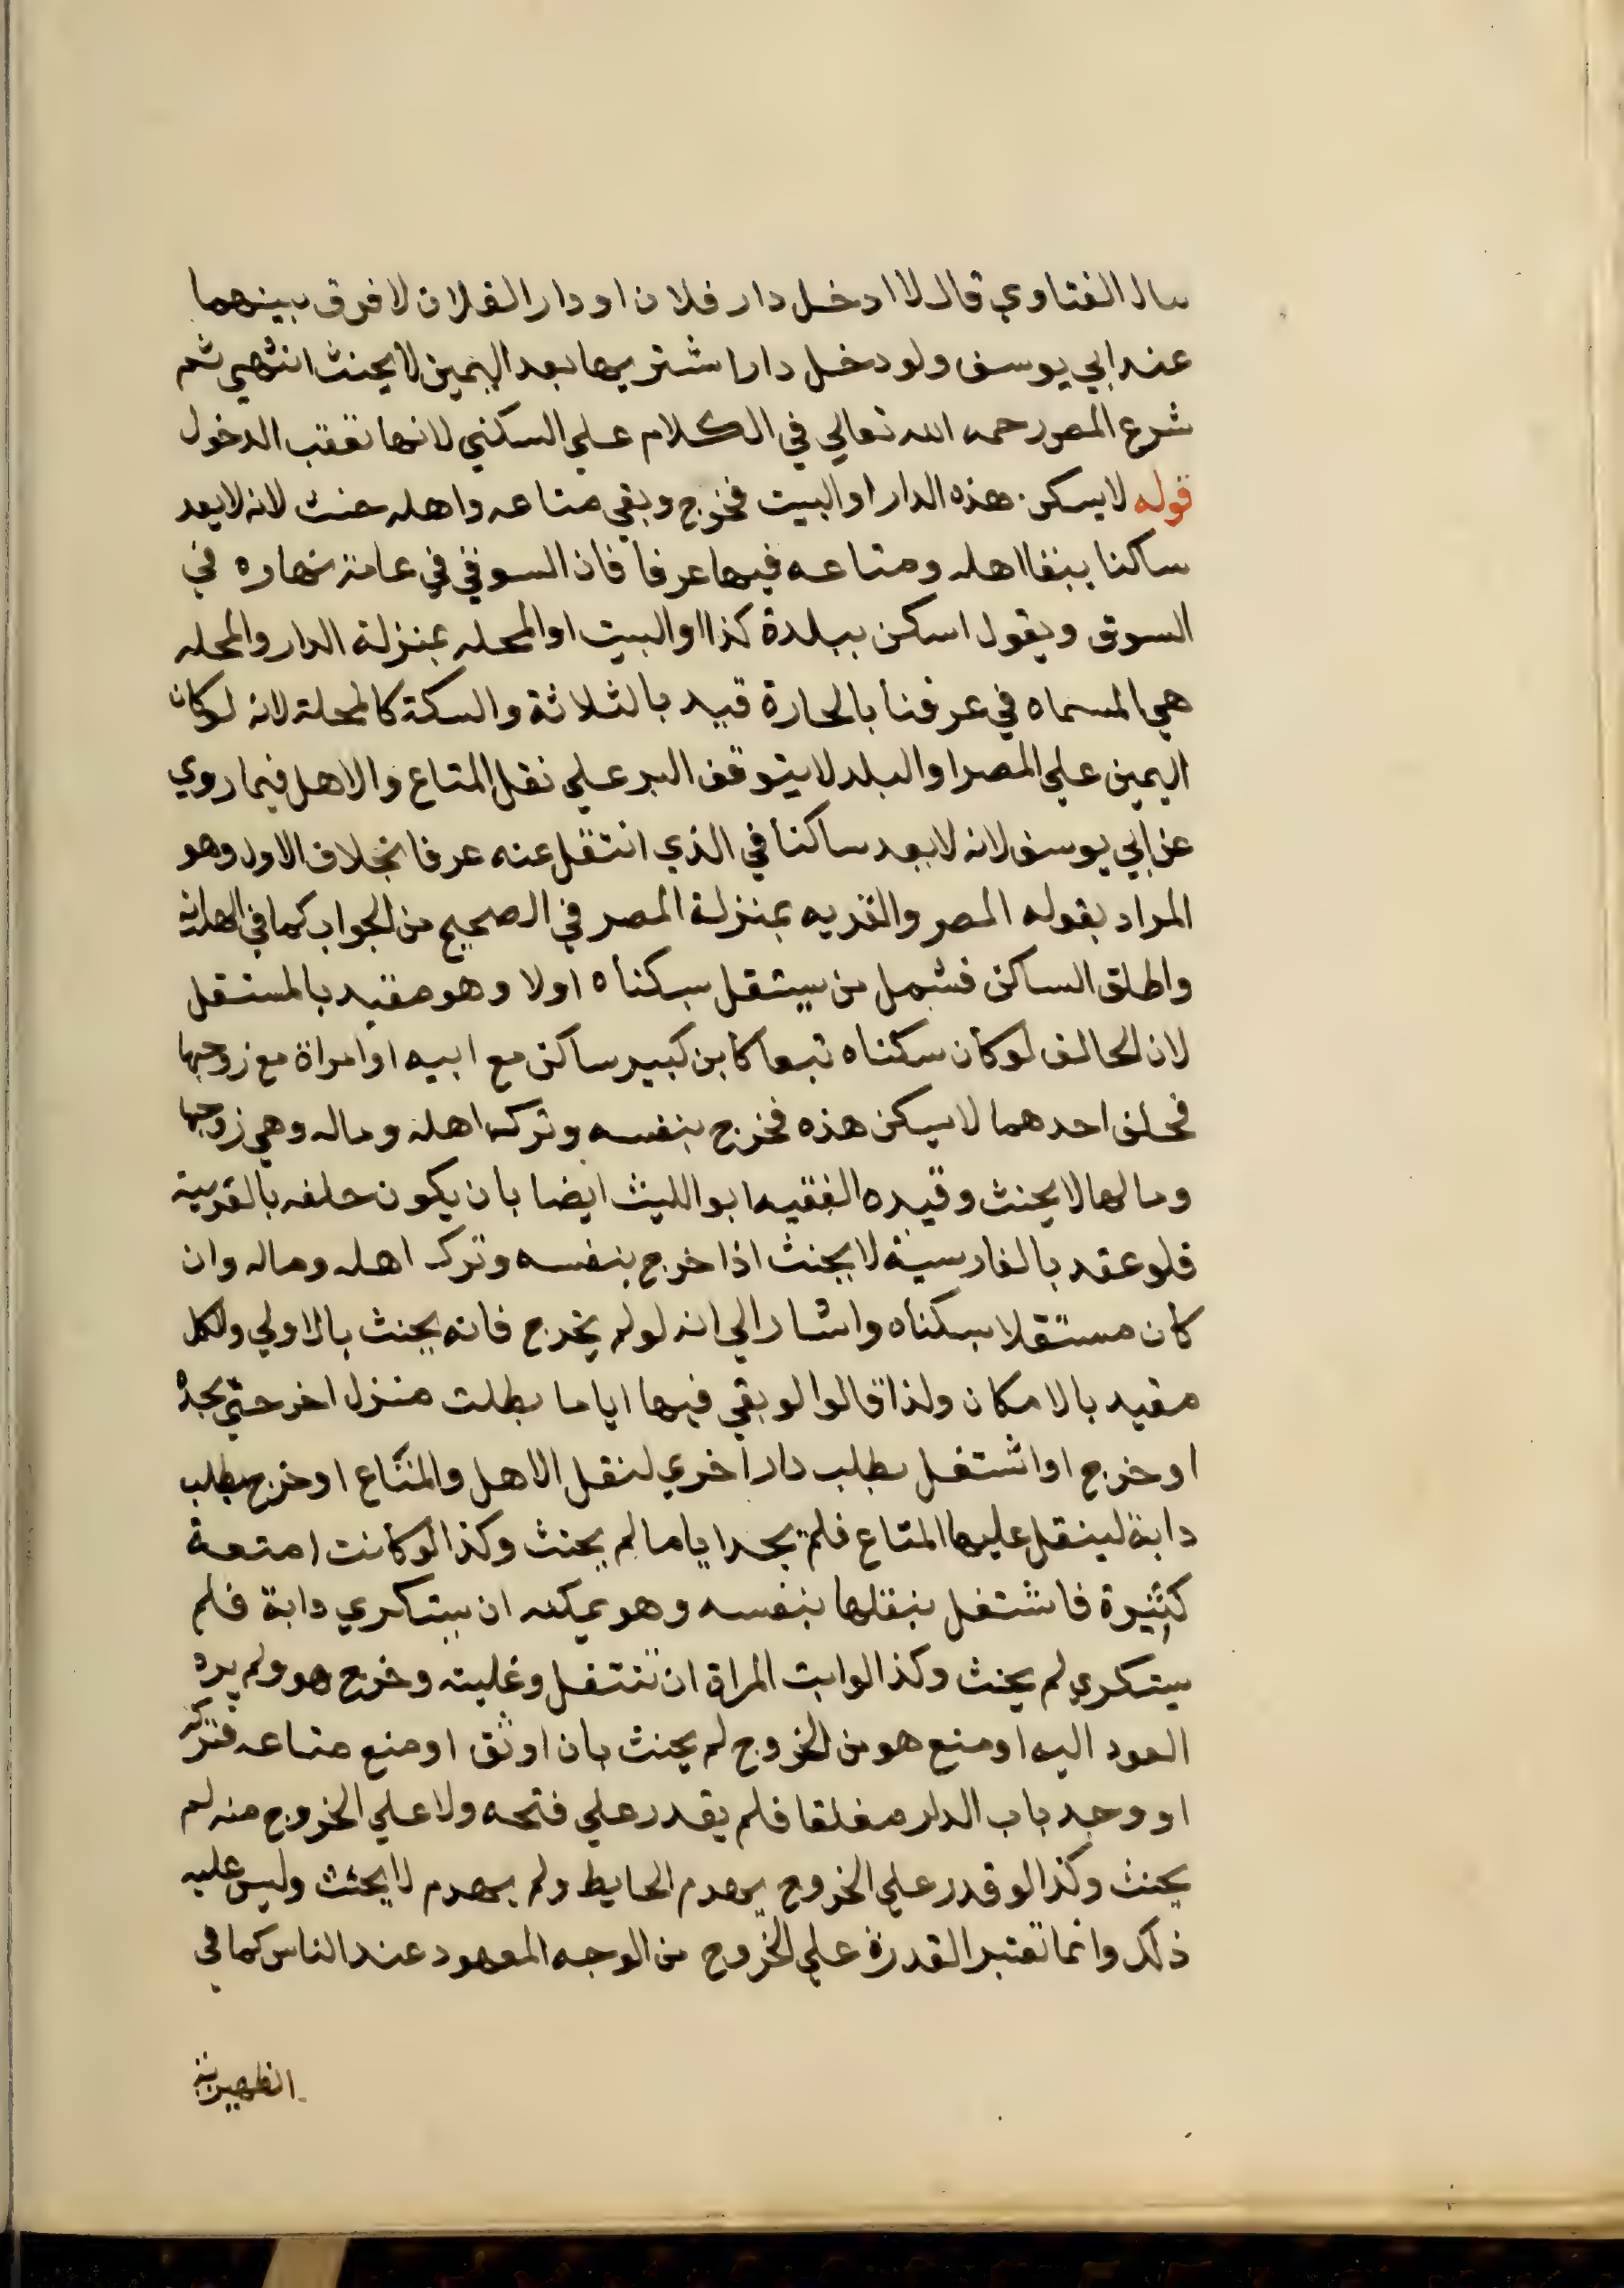 مال الفتاوي قال لا ادخل دار فلان او دار الفلان لا فرق بينهما
عند ابي يوسف ولو دخل دارا شتريها بعد اليمين لا يحنث انتهي ثم
شرع المصر رحمه الله تعالي في الكلام علي السكني لانها تعقب الدخول
قوله لا يسكن هذه الدار او البيت فخرج وبقي متاعه واهله حنث لانه لا يعد
ساكنا ببقا اهله ومتاعه فيها عرفا فان السوقي في عامة نهاره في
السوق ويقول اسكن ببلدة كذا او البيت او المحله بمنزلة الدار والمحله
هي المسماه في عرفنا بالحارة قيد بالثلاثة والسكة كالمحلة لانه لو كان
اليمين علي المصر او البلد لا يتوقف البر علي نقل المتاع والاهل فيما روي
عن ابي يوسف لانه لا يعد ساكنا في الذي انتقل عنه عرفا بخلاف الاول وهو
المراد بقوله المصر والقريه بمنزلة المصر في الصحيح من الجواب كما في الهداية
واطلق الساكن فشمل من يستقل بسكناه اولا وهو مقيد بالمستقل
لان الحالف لو كان سكناه تبعا كابن كبير ساكن مع ابيه او امراة مع زوجها
فحلف احدهما لا يسكن هذه فخرج بنفسه وترك اهله وماله وهي زوجها
ومالها لا يحنث وقيده الفقيه ابو الليث ايضا بان يكون حلفه بالعربية
فلو عقد بالفارسية لا يحنث اذا خرج بنفسه وترك اهله وماله وان
كان مستقلا بسكناه واشار الي انه لو لم يخرج فانه يحنث بالاولي والكل
مقيد بالامكان ولذا قالوا لو بقي فيها اياما يطلب منزل اخر حتي يجده
او خرج او اشتغل بطلب دار اخري لنقل الاهل والمتاع او خرج يطلب
دابة لينقل عليها المتاع فلم يجد اياما لم يحنث وكذا لو كانت امتعة
كثيرة فاشتغل بنقلها بنفسه وهو يمكنه ان يستكري دابة فلم
يستكري لم يحنث وكذا لو ابت المراة ان تنتقل وغلبته وخرج هو ولم يرد
العود اليه او منع هو من الخروج لم يحنث بان اوثق او منع متاعه فتركه
او وجد باب الدار مغلقا فلم يقدر علي فتحه ولا علي الخروج منه لم
يحنث وكذا لو قدر علي الخروج بهدم الحايط ولم يهدم لا يحنث وليس عليه
ذلك وانما تعتبر القدرة علي الخروج من الوجه المعهود عند الناس كما في
الظهيرية